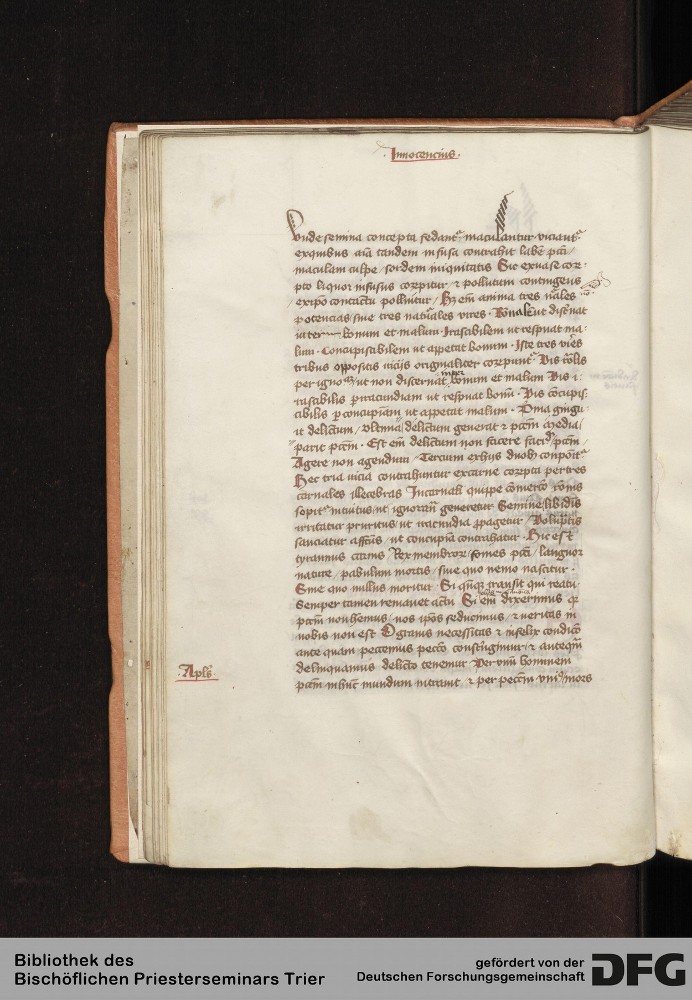 Innocencius.
Vnde semina concepta sedant᷑ maculantur viciant᷑
ex quibus aīa tandem infusa contrahit labē pctī
maculam culpe / sordem iniquitatis Sic ex vase cor⸗
pto liquor infusus corrūpitur / ⁊ pollutum contingens
ex ipo contactu polluitur / Hꝫ em̄ anima tres nāles
potencias / siue tres naturales vires ut discnat
inter bonum et malum. Irascibilem ut respuat ma⸗
lum. Concupiscibilem ut appetat bonum. Iste tres vires
tribus oppositis vicijs originaliter corrūpunt᷑. Vis rōlis
per ignorātiā / ut non discernat inter bonum et malum Vis i⸗
rascibilis p iracundiam ut respuat bonū. Vis cōcupis⸗
cibilis p concupiam ut appetat malum.
delictum / vltima delictum generat ⁊ pctm̄ media /
parit pctm̄. Est em̄ delictum non facere faciēd / pctm̄ /
Agere non agendum
Hec tria vicia contrahuntur ex carne corrupta per tres
carnales illecebras In carnali quippe cōmercō rōnis
sopit᷑ intuitus / ut ignoran generetur Semine libidīs
irritatur pruritus / ut iracundia ꝓpagetur / Voluptīs
sauciatur affcūs / ut concupia contrahatur. Hic est
tyrannus carnis Rex membroꝝ / fomes pctī / languor
nature / pabulum mortis / sine quo nemo nascitur.
Sine quo nullus moritur. Si qn̄qꝫ transit reatu
Semper tamen remanet actu Si em̄ dixerimus qꝫ
pctm̄ non hemus / nos ipōs seducimus / ⁊ veritas in
nobis non est O grauis necessitas ⁊ infelix condicō
ante quam peccemus peccō constringimur / ⁊ anteqm̄
delinquamus delicto tenemur Per vnū hominem
pctm̄ in hūc mundum intrauit ⁊ per pccm̄ mors
.Apls̄.
Bibliothek des
Bischöflichen Priesterseminars Trier
gefördert von der
Deutschen Forschungsgemeinschaft
DFG